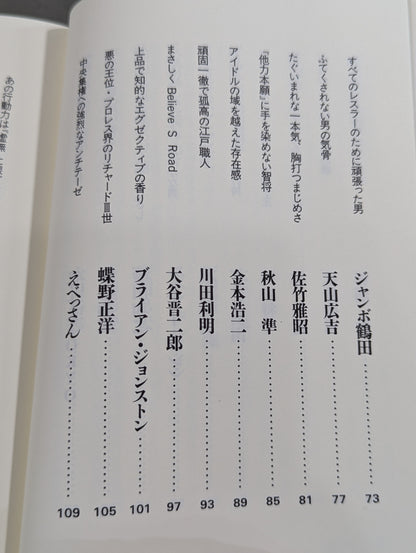 すべてのレスラーのために頑張った男
ジャンボ鶴田 73
ふてくされない男の気骨
天山広吉 77
たぐいまれな一本気、胸打つまじめさ
佐竹雅昭 81
「他力本願」に手を染めない智将
秋山 準 85
アイドルの域を越えた存在感
金本浩二 89
頑固一徹で孤高の江戸職人
川田利明 93
まさしく Believe S Road
大谷晋二郎 97
上品で知的なエグゼクティブの香り
ブライアン・ジョンストン 101
悪の王位・プロレス界のリチャードⅢ世
蝶野正洋 105
中央集権への強烈なアンチテーゼ
えべっさん 109
あの行動力は「虚無」